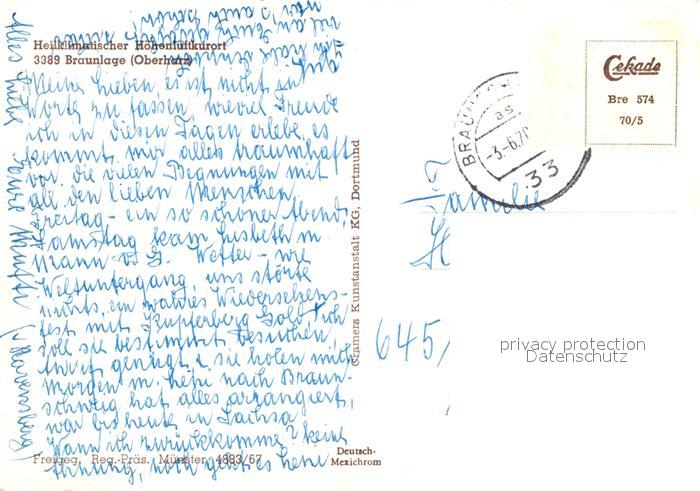 Heilklimatischer Höhenluftkurort
3389 Braunlage (Oberharz)
Meine Lieben, es ist nicht in
Worte zu fassen wieviel Freude
ich in diesen Tagen erlebe, es
kommt mir alles traumhaft
vor, die vielen Begnungen mit
all den lieben Menschen,
Freitag - ein so schöner Abend,
Samstag kam Lisbeth m
Mann Wetter - wie
Weltuntergang, uns störte
nichts, ein wahres Wiedersehens-
fest mit Kupferberg Gold, ich
soll sie bestimmt besuchen,
sie holen mich
morgen m. hein nach Braun-
schweig hat alles arrangiert,
war bis heute in Sachsa
Wann ich zurückkomme? keine
Ahnung, noch geht es hier
Alles Liebe Eure Mutti
Freigeg. Reg.-Präs. Münster 4883/67
Cramers Kunstanstalt KG, Dortmund
Deutsch-
Mexichrom
Cekade
Bre 574
70/5
-3.-6.70
33
Familie
H
645
privacy protection
Datenschutz